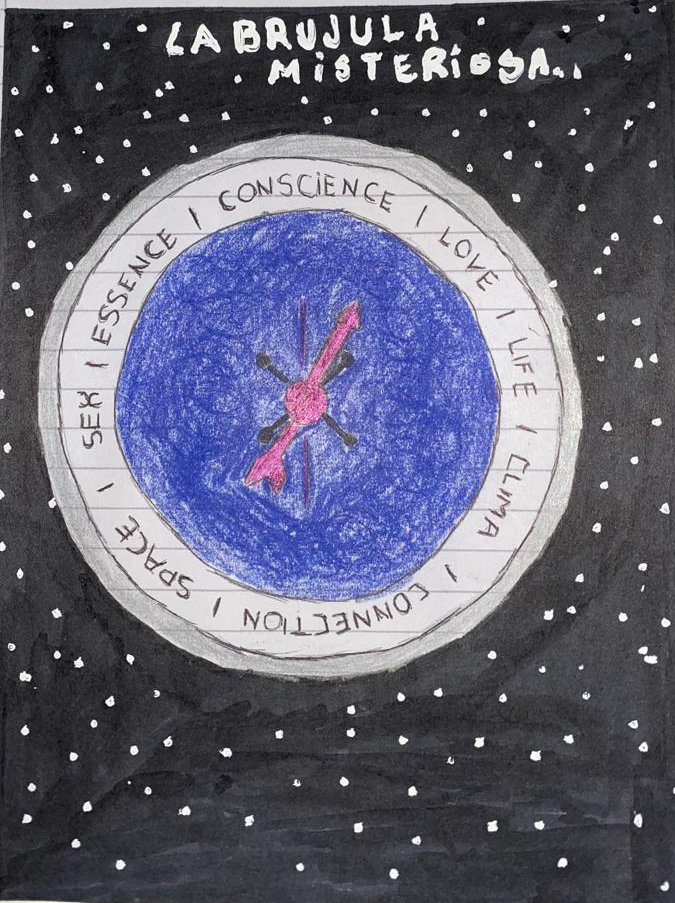 LA BRUJULA
MiSTERiOSA...
CONSCiENCE / LOVE / LIFE / CLIMA / CONNECTION / SPACE / SEX / ESSENCE /